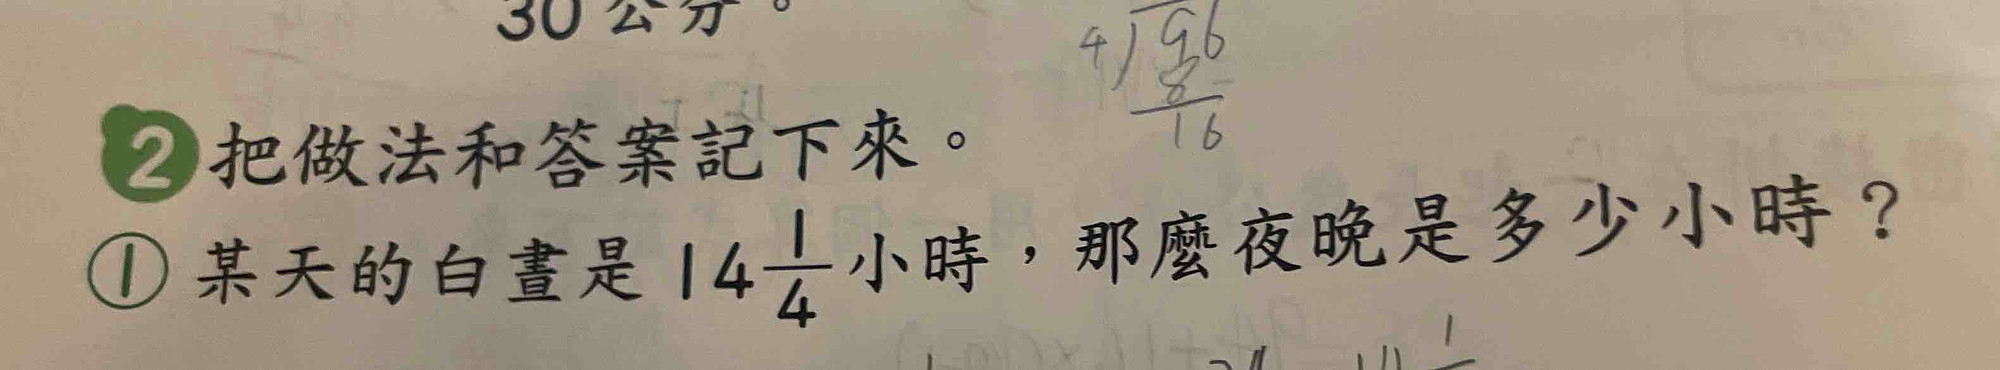 30公分。
4)96
8
16
2 把做法和答案記下來。
① 某天的白晝是14 1/4 小時，那麼夜晚是多少小時？